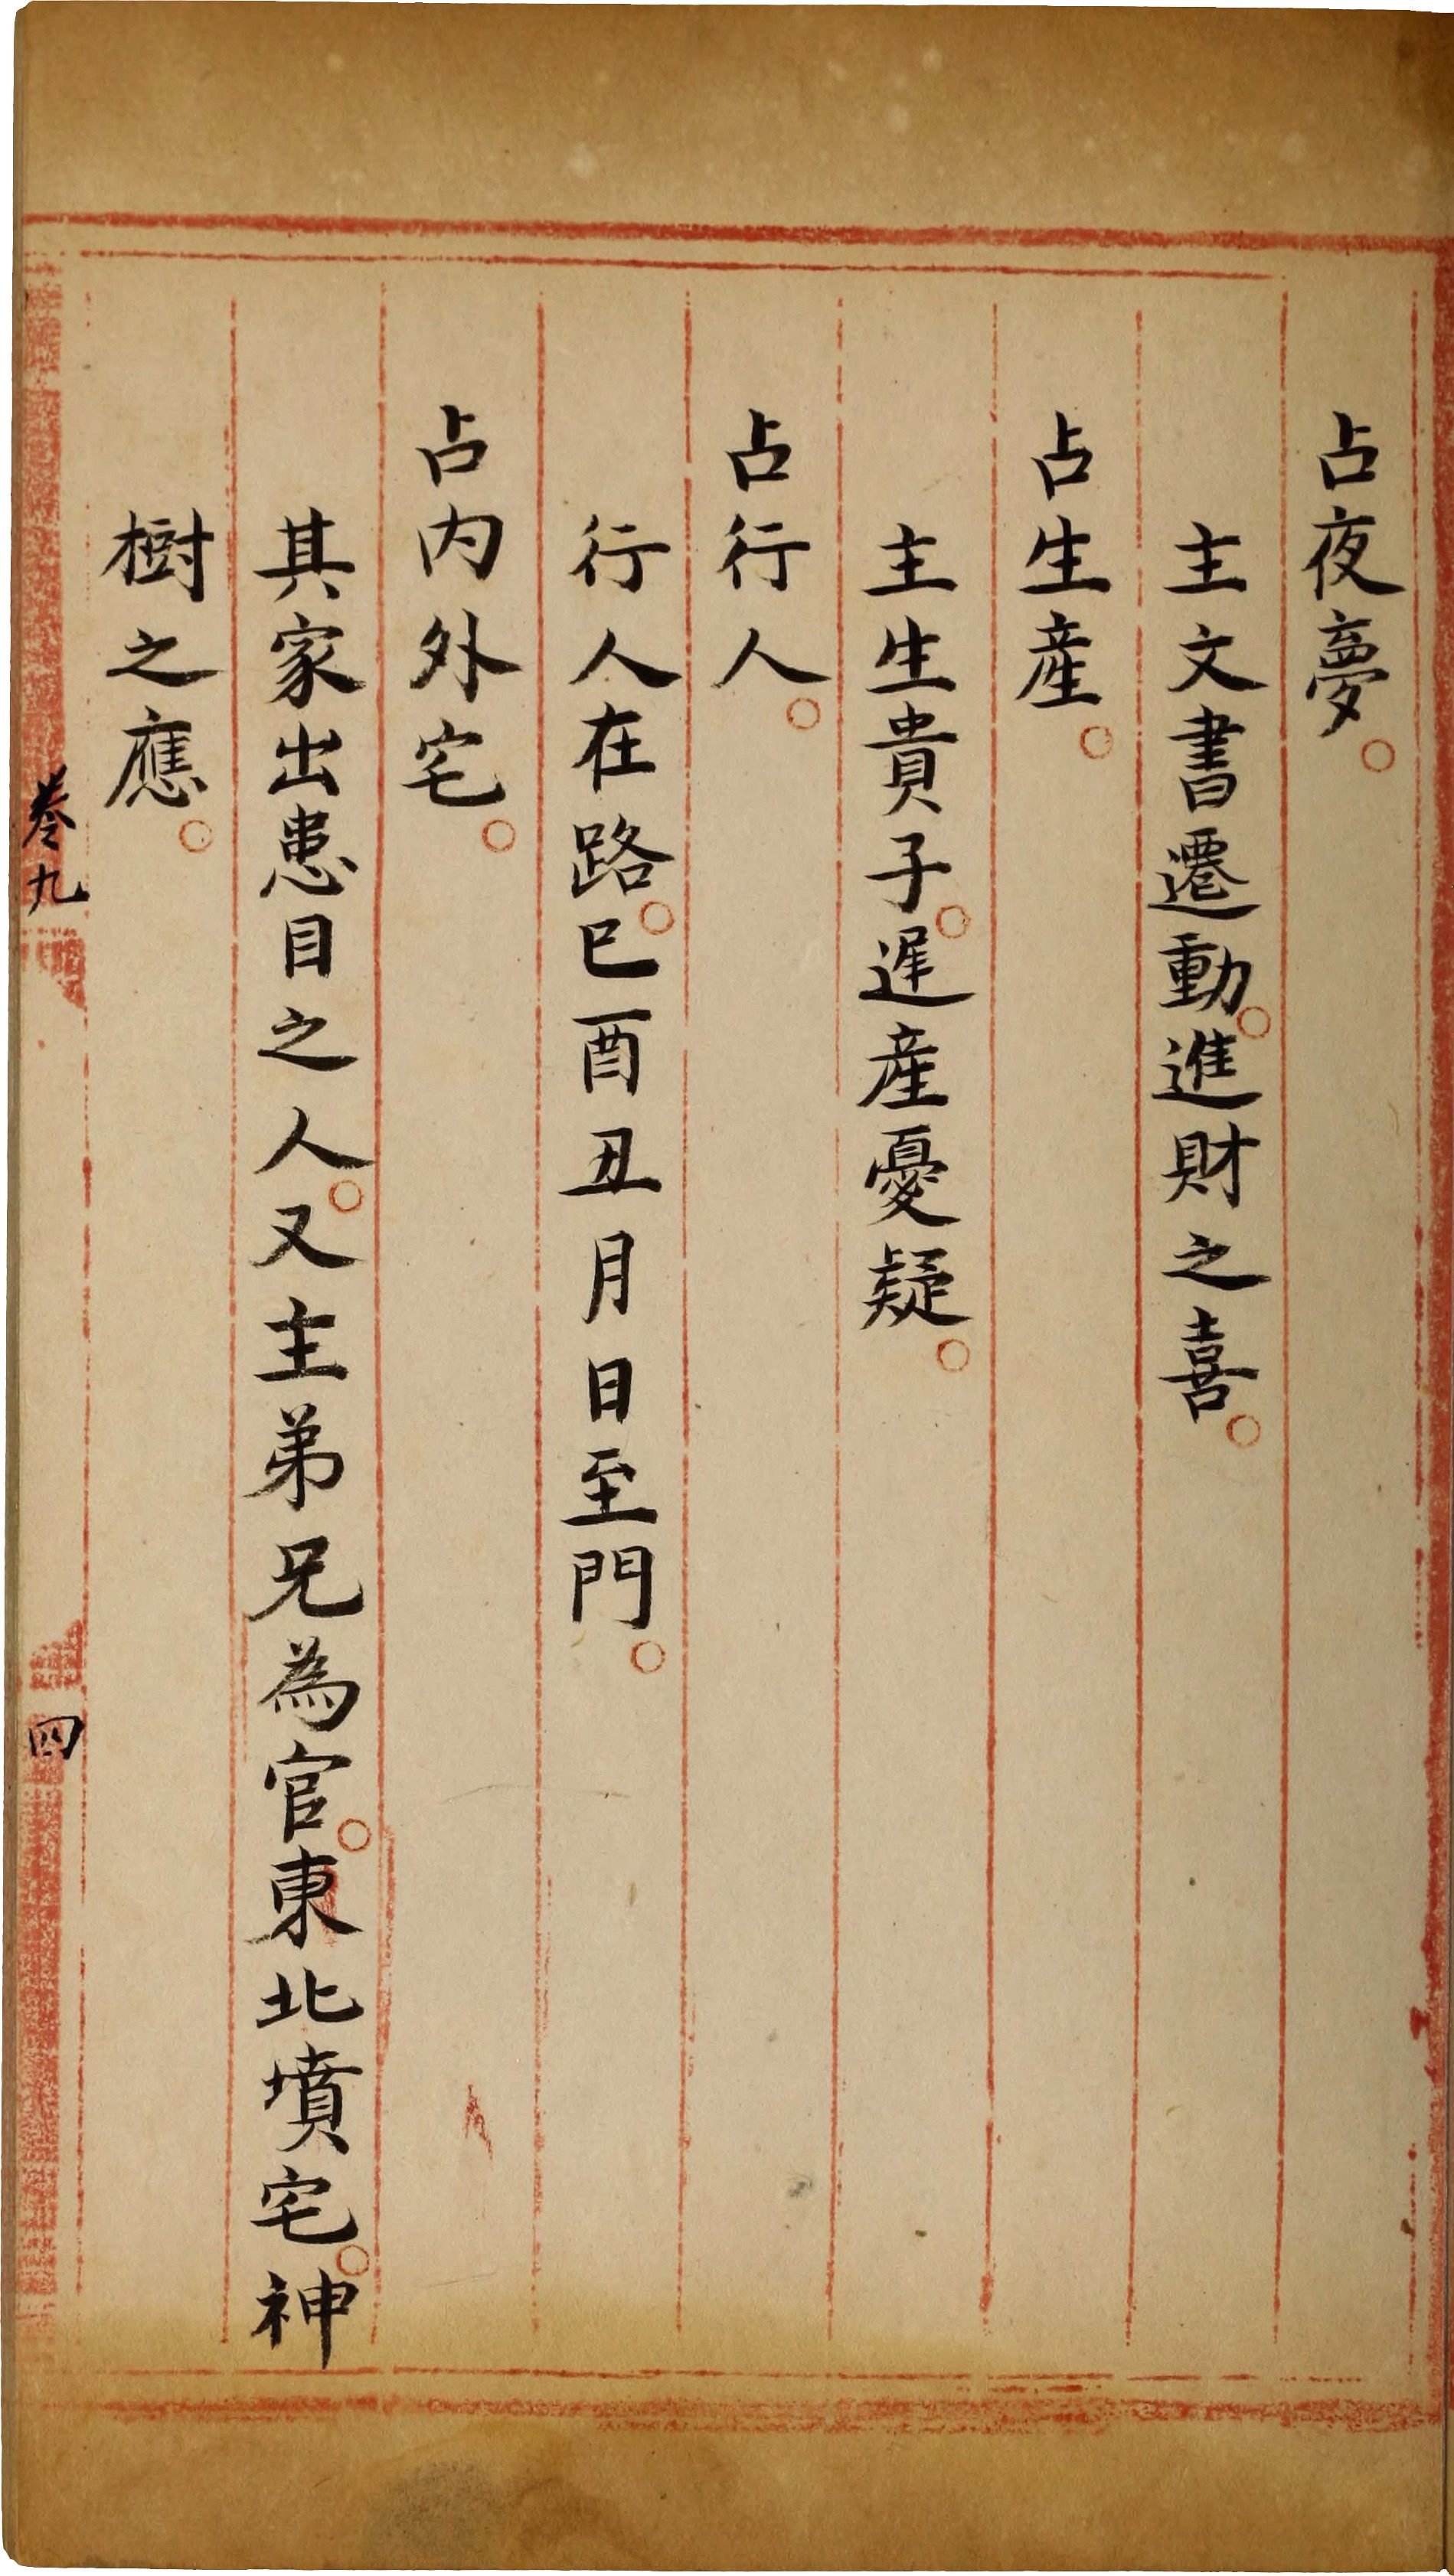 占夜夢。
主文書遷動。進財之喜。
占生産。
主生貴子。遲産憂疑。
占行人。
行人在路。巳酉丑月日至門。
占内外宅。
其家出患目之人。又主弟兄為官。東北墳宅。神
樹之應。
卷九
四